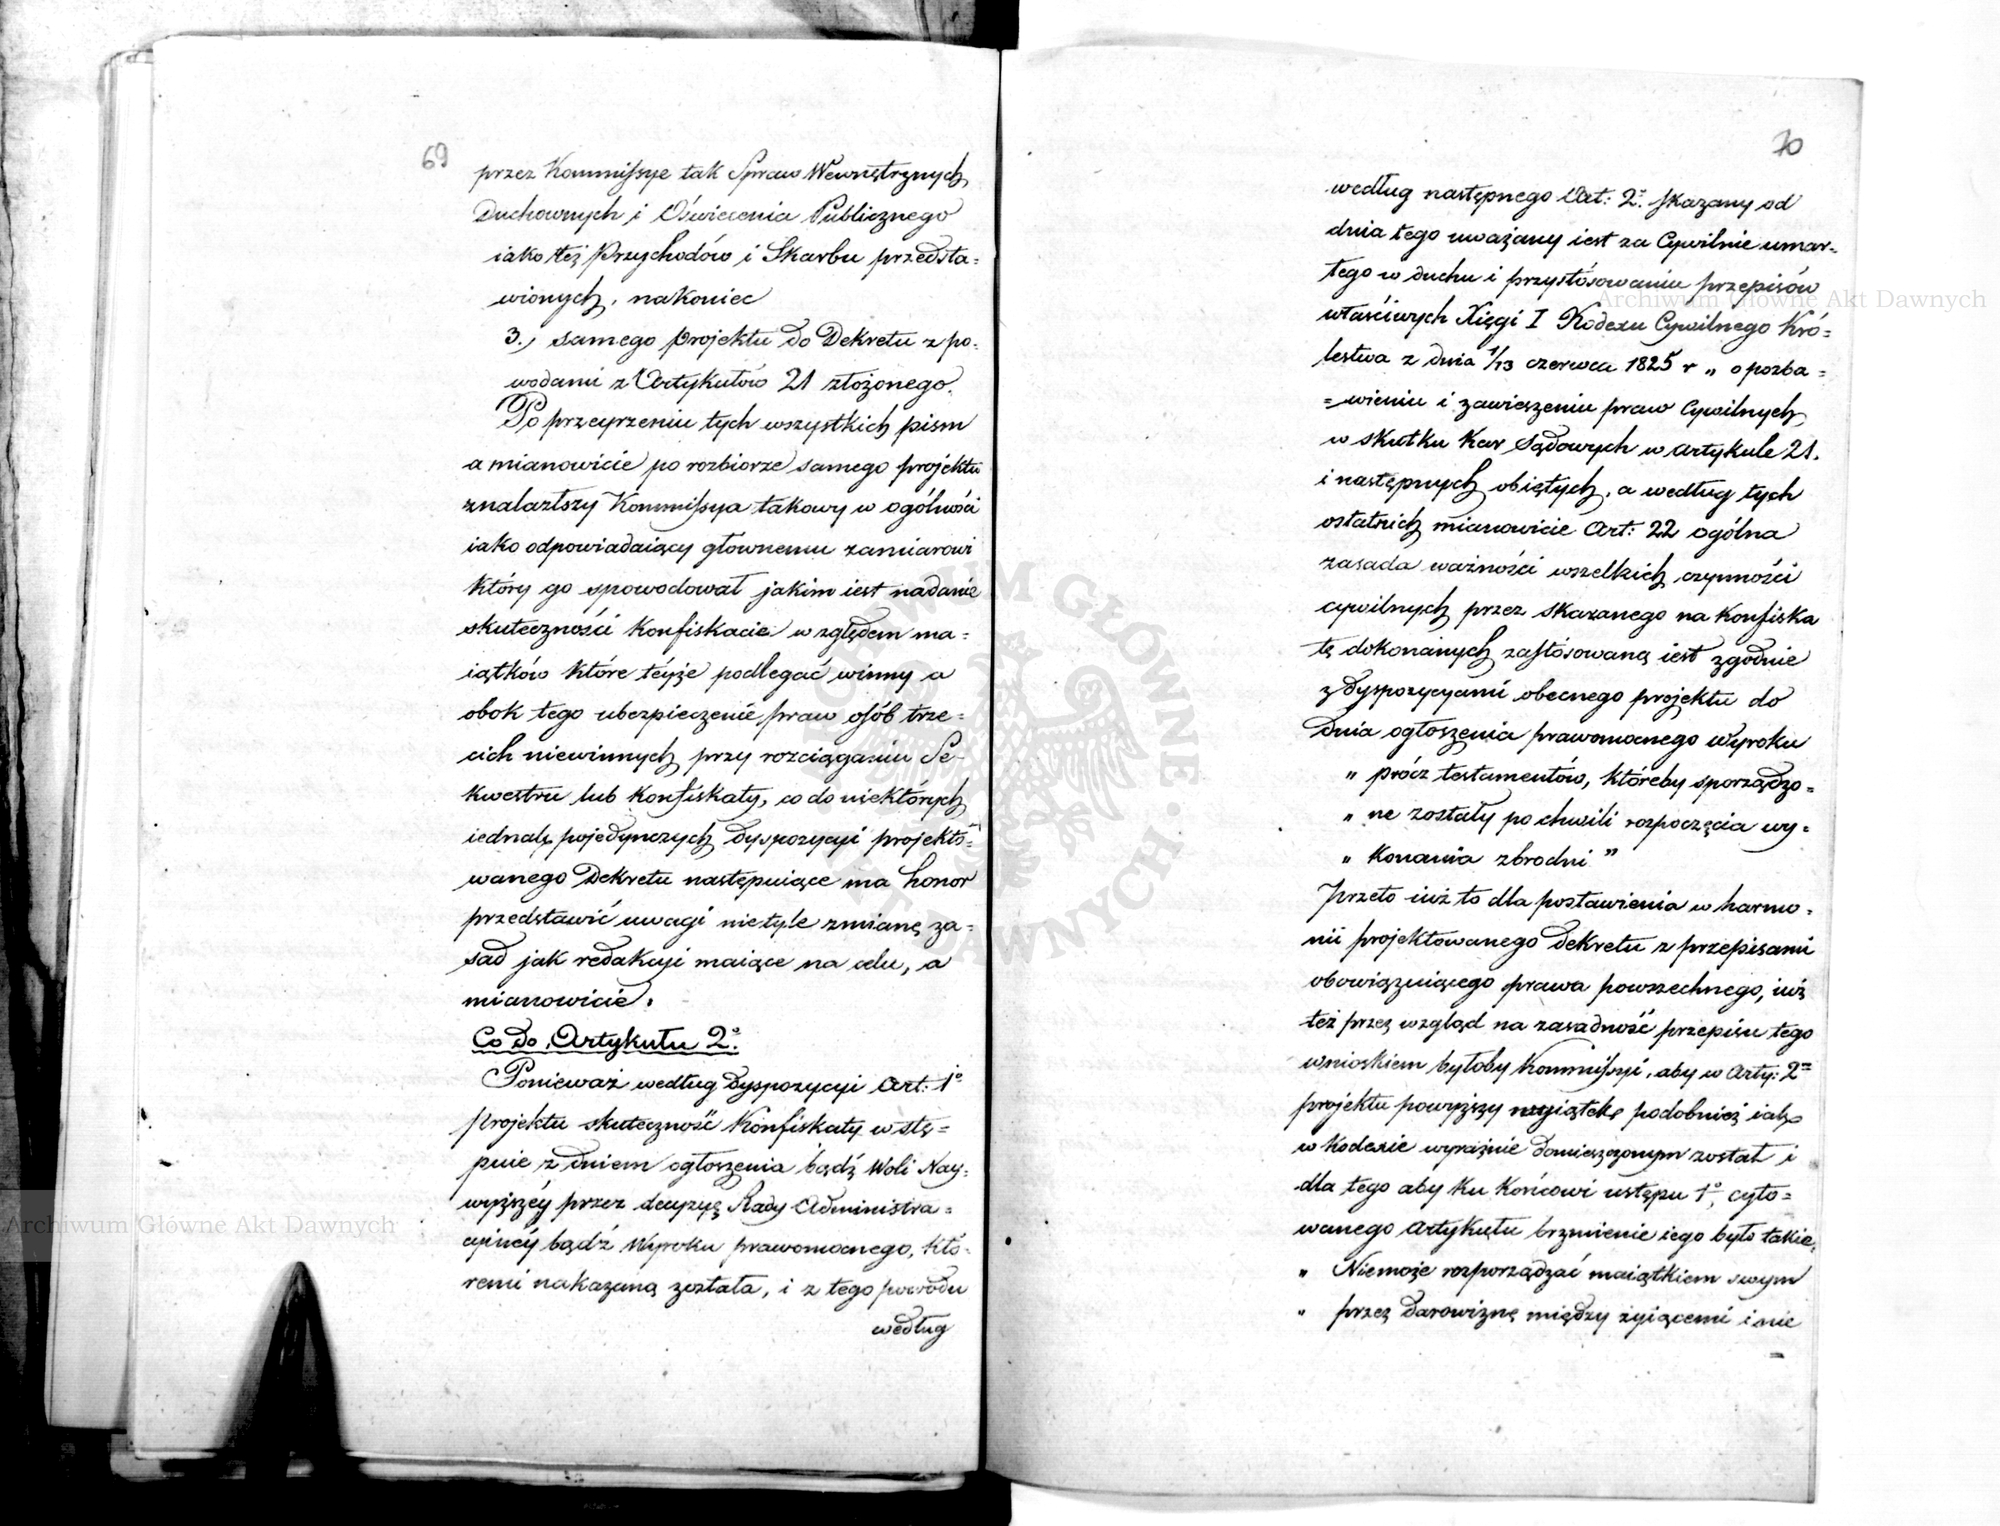 69
przez Kommissye tak Spraw Wewnętrznych
Duchownych i Oświecenia Publicznego
iako też Przychodów i Skarbu przedsta=
wionych, nakoniec
3., samego projektu do Dekretu z po=
wodami z Artykułów 21 złożonego.
Po przeyrzeniu tych wszystkich pism
a mianowicie po rozbiorze samego projektu
znalazłszy Kommissya takowy w ogólności
iako odpowiadaiący głównemu zamiarowi
który go spowodował jakim iest nadanie
skuteczności Konfiskacie względem ma=
iątków które téyże podlegać winny a
obok tego ubezpieczenie praw osób trze=
cich niewinnych przy rozciąganiu Se=
kwestru lub Konfiskaty, co do niektórych
iednak pojedynczych dyspozycyi projektó=
wanego Dekretu następuiące ma honor
przedstawić uwagi nietyle zmianę za=
sad jak redakcyi maiące na celu, a
mianowicie.
Co do Artykułu 2º
Ponieważ według dyspozycyi Art: 1º
projektu skuteczność Konfiskaty wstę=
puie z dniem ogłoszenia bądź Woli Nay=
wyższéy przez decyzyę Rady Administra=
cyinéy bądź Wyroku prawomocnego, któ=
remi nakazaną została, i z tego powodu
według
70
według następnego Art: 2º skazany od
dnia tego uważany iest za Cywilnie umar=
łego w duchu i przystósowaniu przepisów
właściwych Xięgi I Kodexu Cywilnego Kró=
lestwa z dnia 1/13 czerwca 1825 r „ o pozba=
=wieniu i zawieszeniu praw Cywilnych
w skutku Kar Sądowych w artykule 21.
i następnych obiętych, a według tych
ostatnich mianowicie Art: 22 ogólna
zasada ważności wszelkich czynności
cywilnych przez skazanego na Konfiska
tę dokonanych zastósowaną iest zgodnie
z dyspozycyami obecnego projektu do
dnia ogłoszenia prawomocnego Wyroku
„ prócz testamentów, któreby sporządzo=
„ ne zostały po chwili rozpoczęcia wy=
„ Konania zbrodni ”
Przeto iuż to dla postawienia w harmo=
nii projektowanego dekretu z przepisami
obowiązuiącego prawa powszechnego, iuż
też przez wzgląd na zasadność przepisu tego
wnioskiem byłoby Kommissyi, aby w Arty: 2m
projektu powyższy wyiątek podobnież iak
w Kodexie wyraźnie domieszczonym został i
dla tego aby ku Końcowi ustępu 1º, cyto=
wanego Artykułu brzmienie iego było takie,
„ Niemoże rozporządzać maiątkiem swym
„ przez darowiznę między żyiącemi i nie
Archiwum Główne Akt Dawnych
Archiwum Główne Akt Dawnych
ARCHIWUM GŁÓWNE AKT DAWNYCH